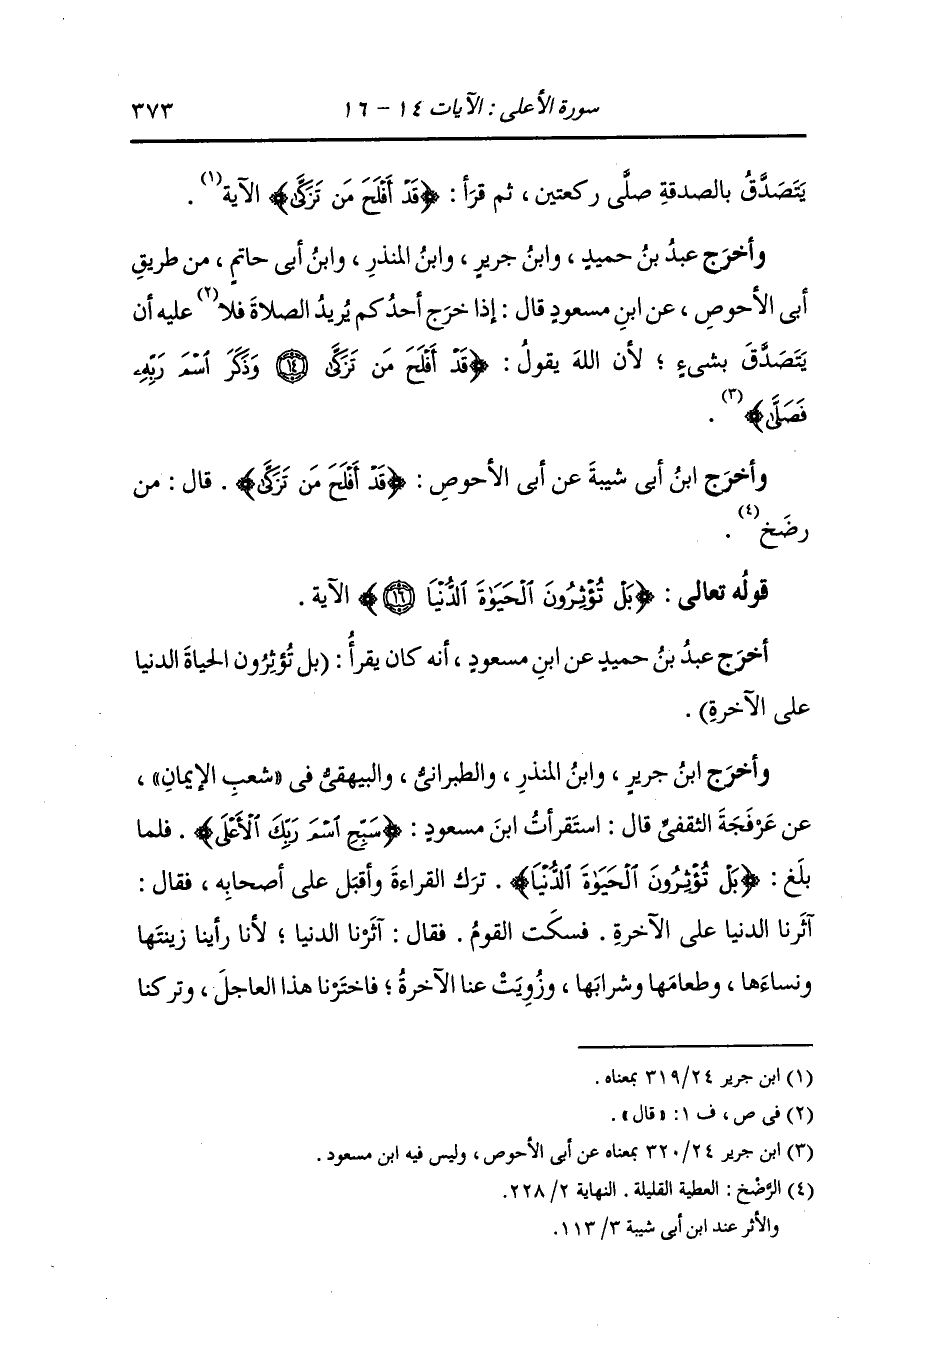 سورة الأعلى : الآيات ١٤ - ١٦ ٣٧٣
يَتَصَدَّقُ بالصدقةِ صلَّى ركعتين ، ثم قرَأ : ﴿قَدْ أَفْلَحَ مَن تَزَكَّىٰ﴾ الآية(١) .
وأخرَج عبدُ بنُ حميدٍ ، وابنُ جريرٍ ، وابنُ المنذرِ ، وابنُ أبى حاتمٍ ، من طريقِ
أبى الأحوصِ ، عن ابنِ مسعودٍ قال : إذا خرَج أحدُكم يُريدُ الصلاةَ فلا(٢) عليه أن
يَتَصَدَّقَ بشىءٍ ؛ لأن اللهَ يقولُ : ﴿قَدْ أَفْلَحَ مَن تَزَكَّىٰ ١٤ وَذَكَرَ ٱسْمَ رَبِّهِۦ
فَصَلَّىٰ﴾(٣) .
وأخرَج ابنُ أبى شيبةَ عن أبى الأحوصِ : ﴿قَدْ أَفْلَحَ مَن تَزَكَّىٰ﴾ . قال : من
رضَخ(٤) .
قولُه تعالى : ﴿بَلْ تُؤْثِرُونَ ٱلْحَيَوٰةَ ٱلدُّنْيَا ١٦﴾ الآية .
أخرَج عبدُ بنُ حميدٍ عن ابنِ مسعودٍ ، أنه كان يقرأُ : (بل تُؤثِرُون الحياةَ الدنيا
على الآخرةِ) .
وأخرَج ابنُ جريرٍ ، وابنُ المنذرِ ، والطبرانىُّ ، والبيهقىُّ فى «شعبِ الإيمانِ» ،
عن عَرْفَجَةَ الثقفىِّ قال : استَقرأتُ ابنَ مسعودٍ : ﴿سَبِّحِ ٱسْمَ رَبِّكَ ٱلْأَعْلَى﴾ . فلما
بلَغ : ﴿بَلْ تُؤْثِرُونَ ٱلْحَيَوٰةَ ٱلدُّنْيَا﴾ . ترَك القراءةَ وأقبَل على أصحابِه ، فقال :
آثَرنا الدنيا على الآخرةِ . فسكَت القومُ . فقال : آثَرْنا الدنيا ؛ لأنا رأينا زينتَها
ونساءَها ، وطعامَها وشرابَها ، وزُوِيَتْ عنا الآخرةُ ؛ فاختَرْنا هذا العاجلَ ، وتركنا
(١) ابن جرير ٣١٩/٢٤ بمعناه .
(٢) فى ص ، ف ١: « قال » .
(٣) ابن جرير ٣٢٠/٢٤ بمعناه عن أبى الأحوص ، وليس فيه ابن مسعود .
(٤) الرَّضْخ : العطية القليلة . النهاية ٢٢٨/٢.
والأثر عند ابن أبى شيبة ١١٣/٣.